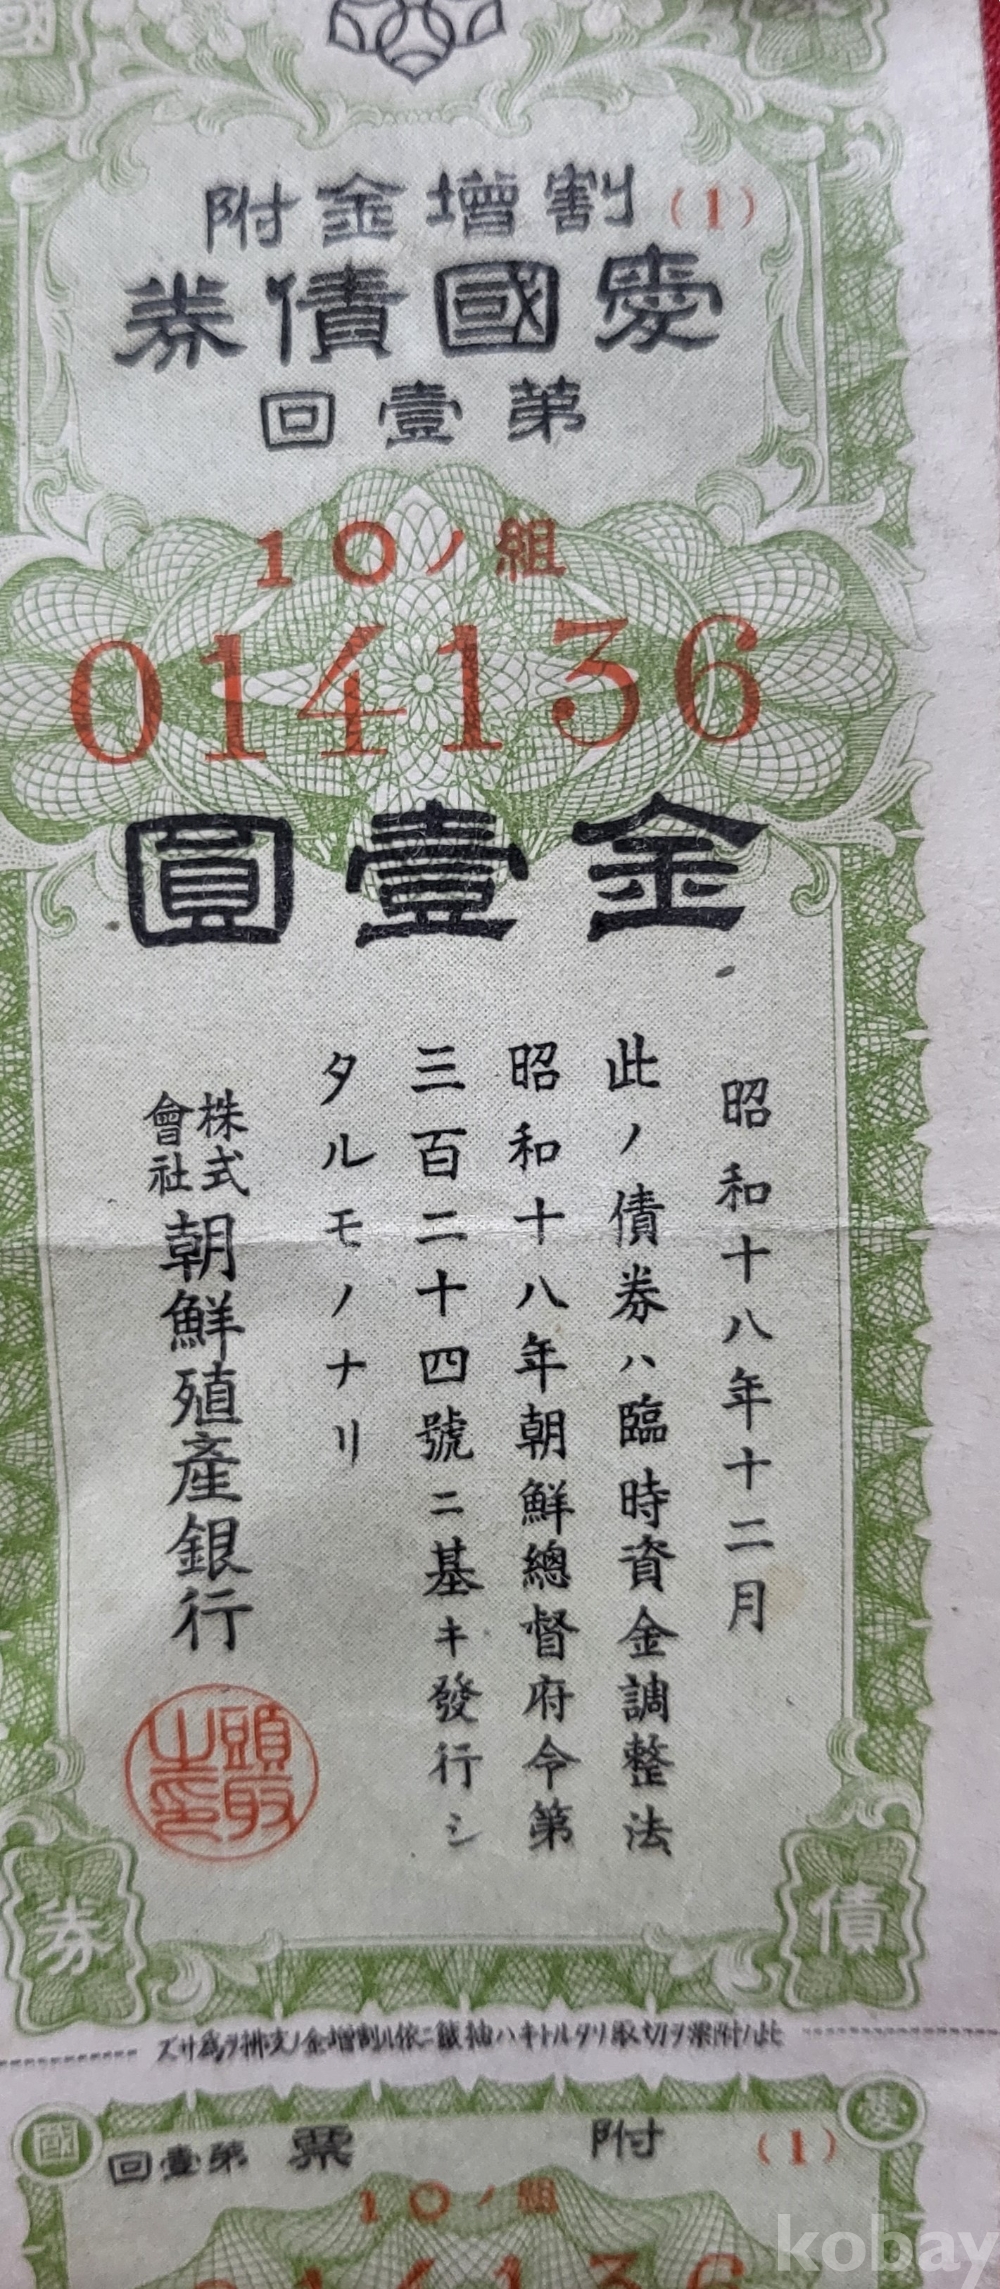 割增金附 (1)
愛國債券
第壹回
10ノ組
014136
金壹圓
昭和十八年十二月
此ノ債券ハ臨時資金調整法
昭和十八年朝鮮總督府令第
三百二十四號ニ基キ發行シ
タルモノナリ
株式會社朝鮮殖產銀行
頭取之印
債券
此ノ附票ヲ切取リタルトキハ抽籤ニ依ル割增金ノ支拂ヲ爲サズ
愛國
附票 第壹回 (1)
10ノ組
014136
kobay